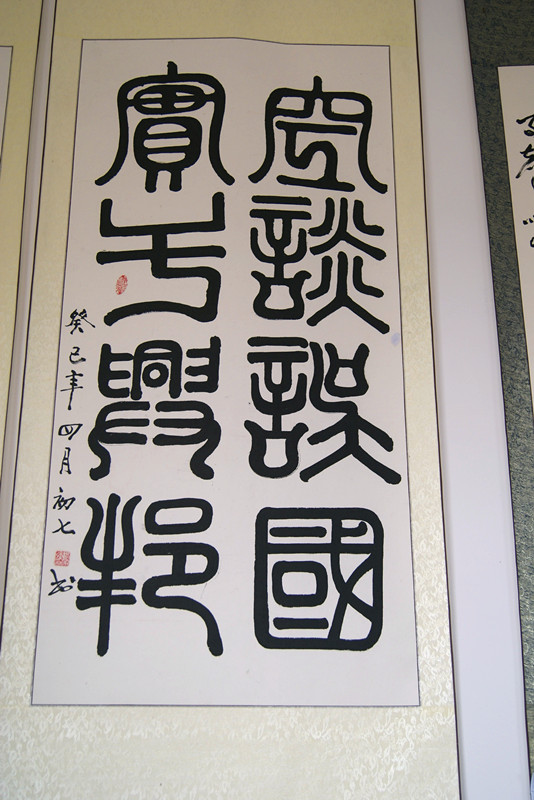 空談誤國
實干興邦
癸巳年四月初七